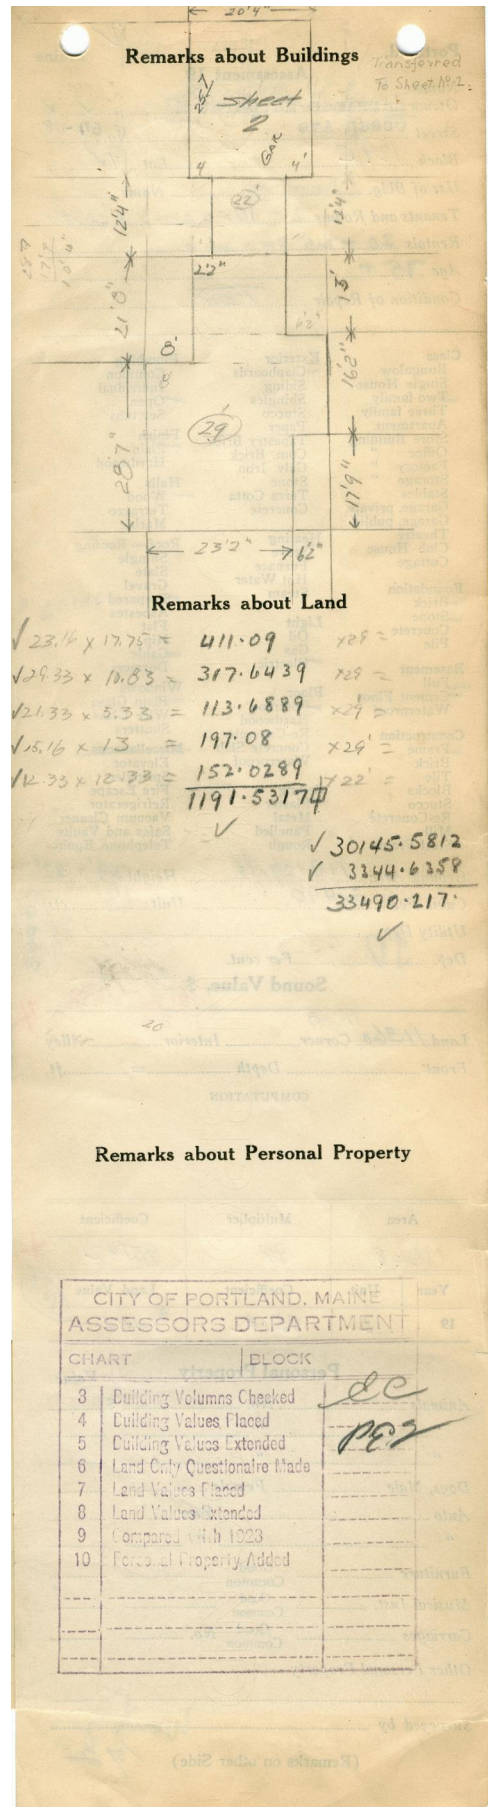 20'4"
Remarks about Buildings
Transferred
To Sheet No. 2.
25'7
Sheet
2
Gar
4 4'
22'
12'4" 12'4"
2'2"
287
17'9
10'4"
21'8" 13'
6'2"
8'
8'
16'2"
29'
28'7" 17'9"
23'2" 6'2"
Remarks about Land
√ 23.16 x 17.75 = 411.09 x29 =
√ 29.33 x 10.83 = 317.6439 x29 =
√ 21.33 x 5.33 = 113.6889 x29' =
√ 15.16 x 13 = 197.08 x29' =
√ 12.33 x 12.33 = 152.0289 x22' =
1191.5317
√ 30145.5812
√ 3344.6358
33490.217.
20
Remarks about Personal Property
CITY OF PORTLAND, MAINE
ASSESSORS DEPARTMENT
CHART BLOCK
3 Building Volumns Checked EC
4 Building Values Placed
5 Building Values Extended
6 Land Only Questionaire Made
7 Land Values Placed
8 Land Values Extended
9 Compared With 1923
10 Personal Property Added